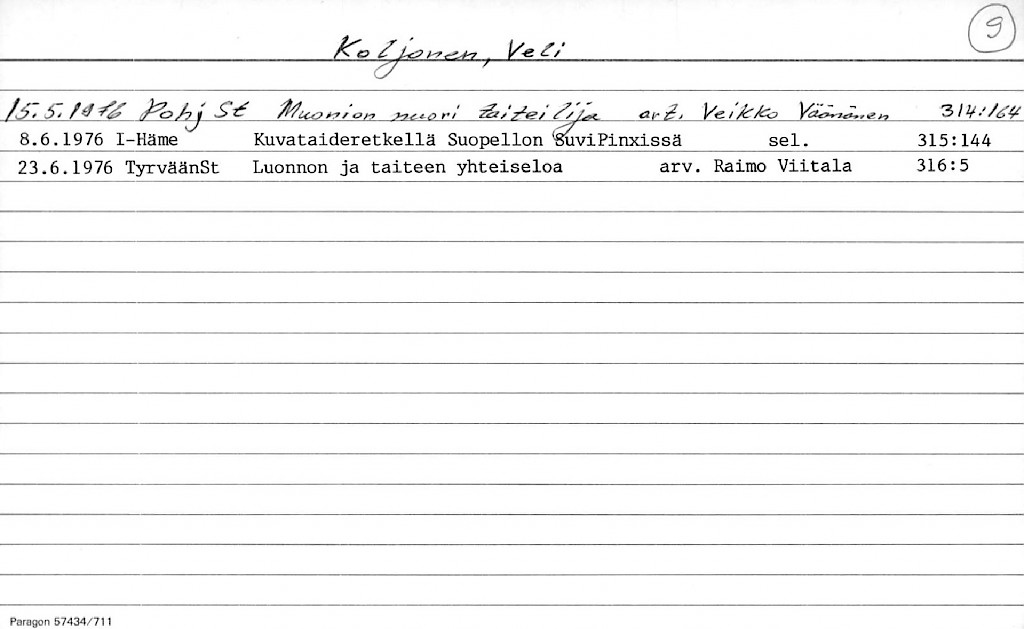 9
Koljonen, Veli
15.5.1976 Pohj St Muonion nuori taiteilija art. Veikko Väänänen 314:164
8.6.1976 I-Häme Kuvataideretkellä Suopellon SuviPinxissä sel. 315:144
23.6.1976 TyrväänSt Luonnon ja taiteen yhteiseloa arv. Raimo Viitala 316:5
Paragon 57434/711